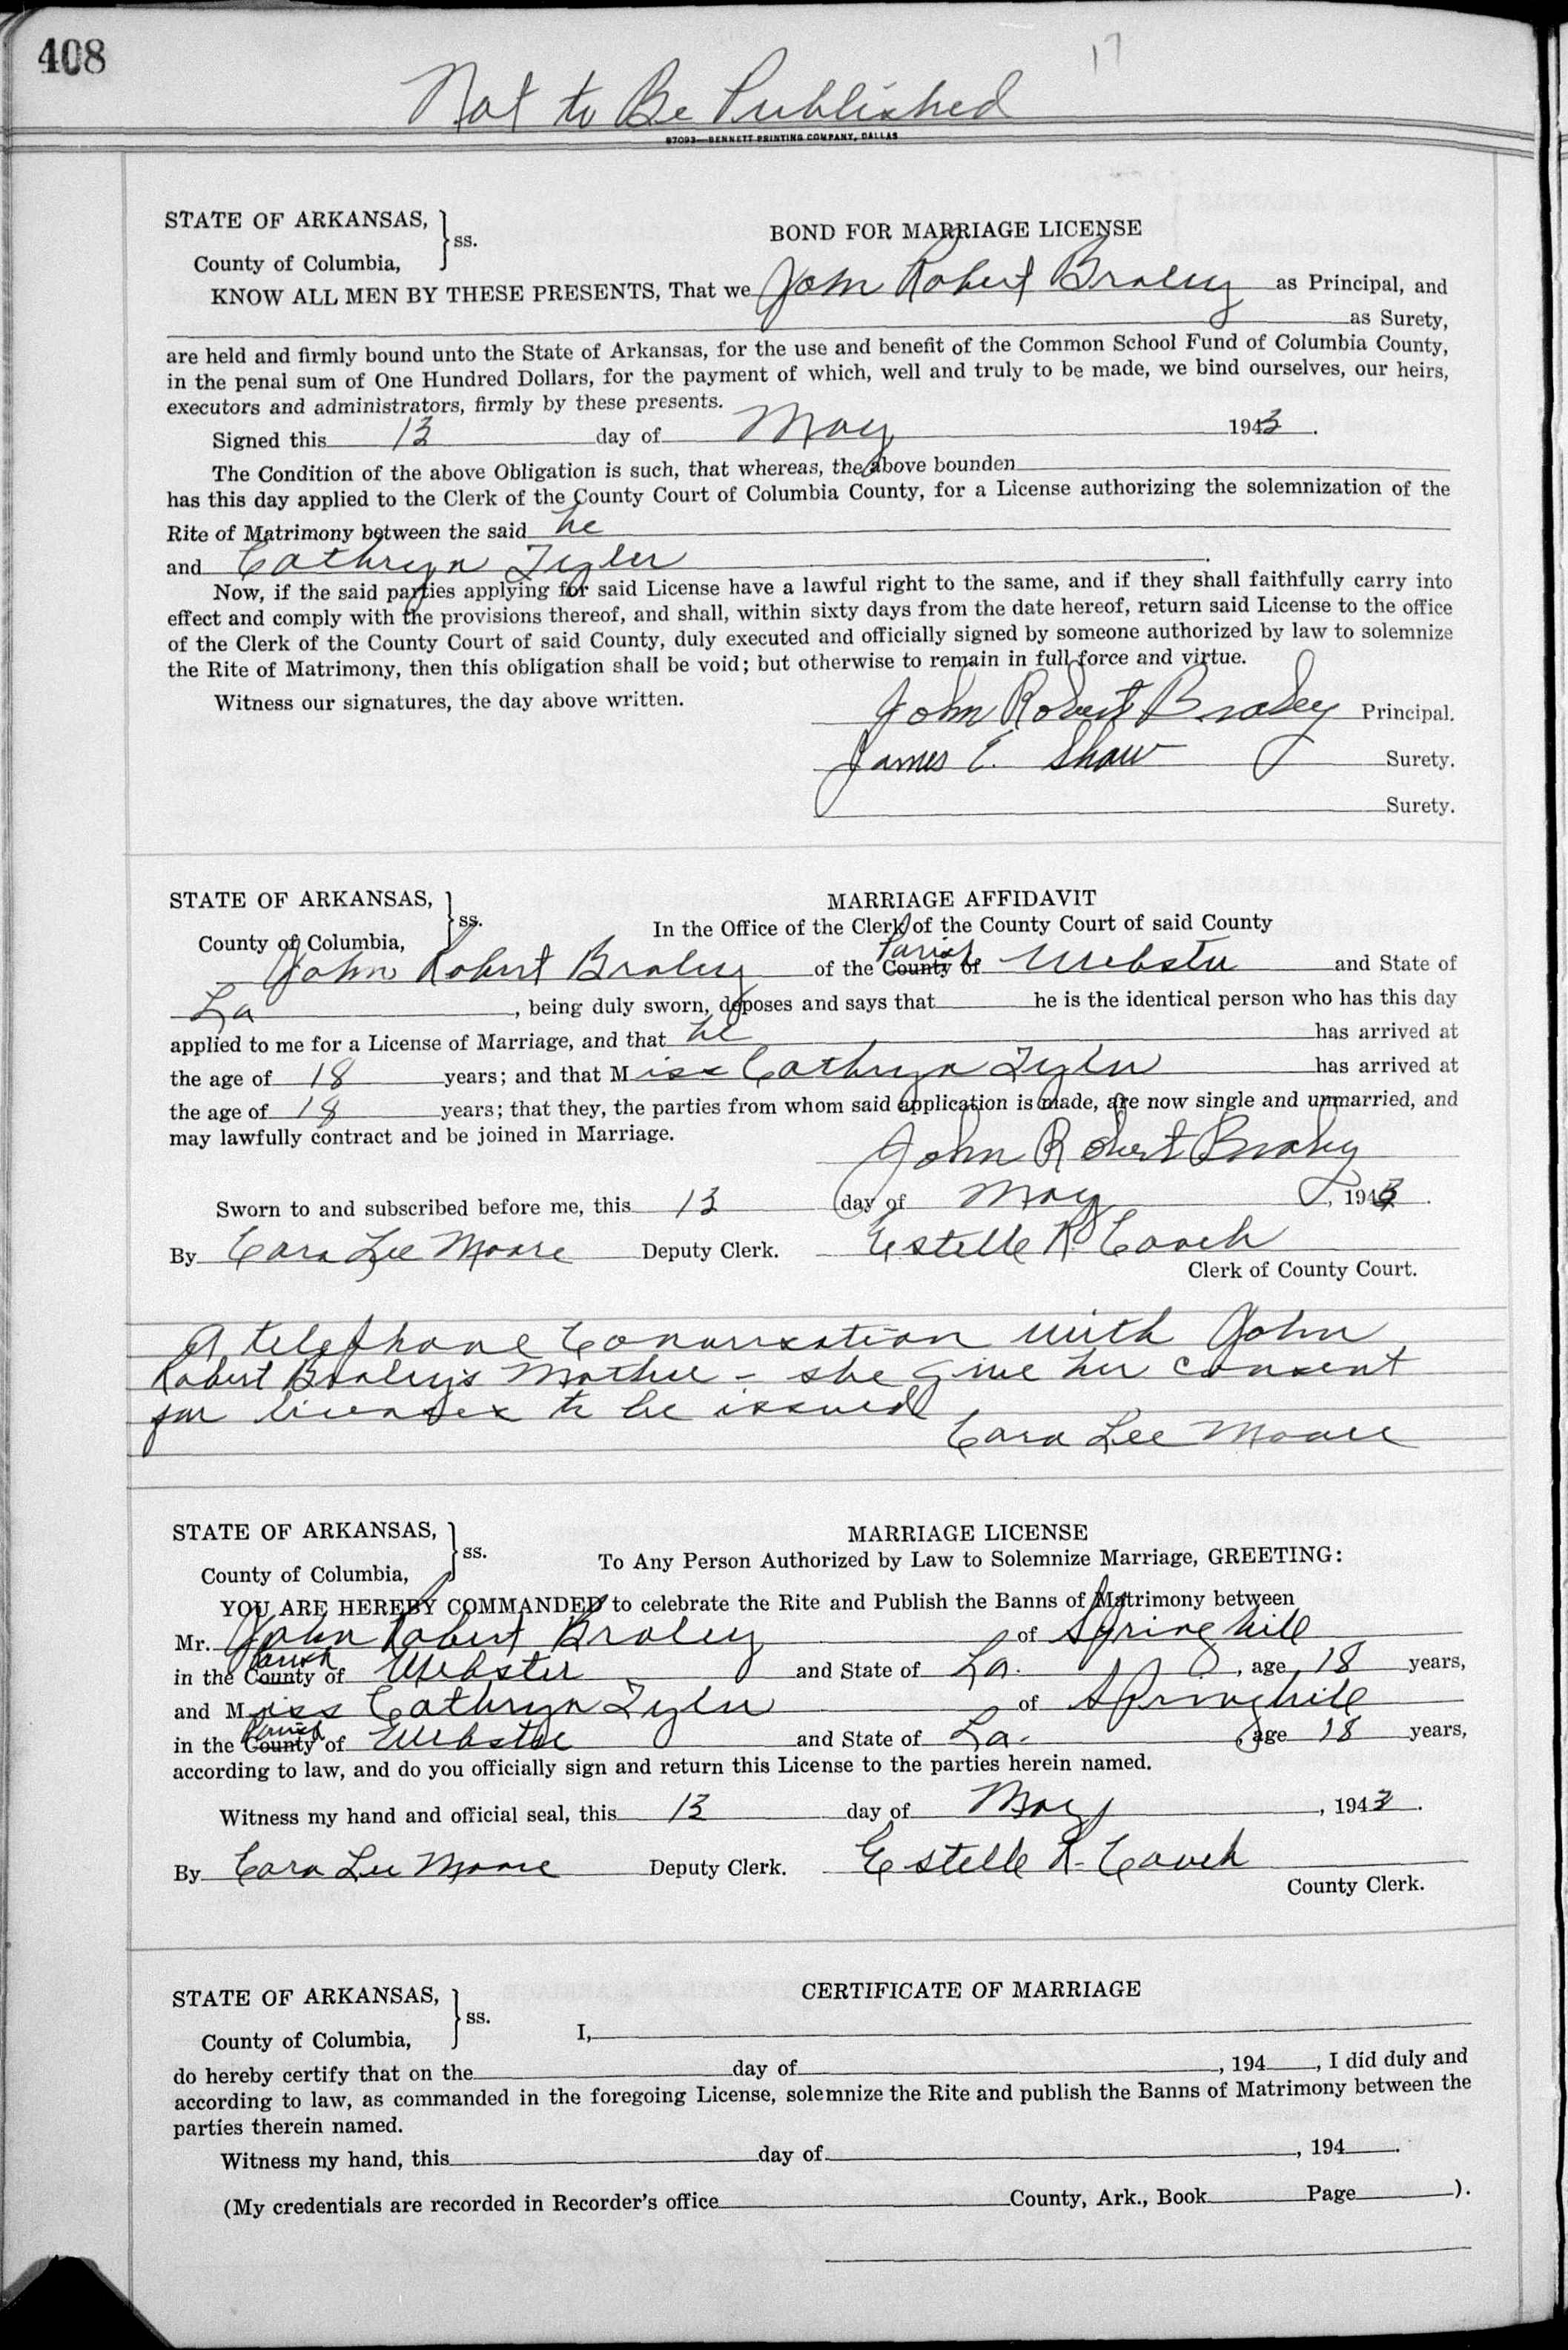 408
17
Not to Be Published
87093—BENNETT PRINTING COMPANY, DALLAS
STATE OF ARKANSAS,
County of Columbia,
ss.
BOND FOR MARRIAGE LICENSE
KNOW ALL MEN BY THESE PRESENTS, That we John Robert Braley as Principal, and
as Surety,
are held and firmly bound unto the State of Arkansas, for the use and benefit of the Common School Fund of Columbia County,
in the penal sum of One Hundred Dollars, for the payment of which, well and truly to be made, we bind ourselves, our heirs,
executors and administrators, firmly by these presents.
Signed this 13 day of May 1943.
The Condition of the above Obligation is such, that whereas, the above bounden
has this day applied to the Clerk of the County Court of Columbia County, for a License authorizing the solemnization of the
Rite of Matrimony between the said he
and Cathryn Tyler.
Now, if the said parties applying for said License have a lawful right to the same, and if they shall faithfully carry into
effect and comply with the provisions thereof, and shall, within sixty days from the date hereof, return said License to the office
of the Clerk of the County Court of said County, duly executed and officially signed by someone authorized by law to solemnize
the Rite of Matrimony, then this obligation shall be void; but otherwise to remain in full force and virtue.
Witness our signatures, the day above written.
John Robert Braley Principal.
James E. Shaw Surety.
Surety.
STATE OF ARKANSAS,
County of Columbia,
ss.
MARRIAGE AFFIDAVIT
In the Office of the Clerk of the County Court of said County
Parish
John Robert Braley of the County of Webster and State of
La, being duly sworn, deposes and says that he is the identical person who has this day
applied to me for a License of Marriage, and that he has arrived at
the age of 18 years; and that Miss Cathryn Tyler has arrived at
the age of 18 years; that they, the parties from whom said application is made, are now single and unmarried, and
may lawfully contract and be joined in Marriage.
John Robert Braley
Sworn to and subscribed before me, this 13 day of May, 1943.
By Cara Lee Moore Deputy Clerk. Estelle R. Couch
Clerk of County Court.
A telephone Conversation with John
Robert Braley's Mother - she give her consent
for licenses to be issued
Cara Lee Moore
STATE OF ARKANSAS,
County of Columbia,
ss.
MARRIAGE LICENSE
To Any Person Authorized by Law to Solemnize Marriage, GREETING:
YOU ARE HEREBY COMMANDED to celebrate the Rite and Publish the Banns of Matrimony between
Mr. John Robert Braley of Springhill
Parish
in the County of Webster and State of La., age 18 years,
and Miss Cathryn Tyler of Springhill
Parish
in the County of Webster and State of La., age 18 years,
according to law, and do you officially sign and return this License to the parties herein named.
Witness my hand and official seal, this 13 day of May, 1943.
By Cara Lee Moore Deputy Clerk. Estelle R. Couch
County Clerk.
STATE OF ARKANSAS,
County of Columbia,
ss.
CERTIFICATE OF MARRIAGE
I,
do hereby certify that on the day of , 194 , I did duly and
according to law, as commanded in the foregoing License, solemnize the Rite and publish the Banns of Matrimony between the
parties therein named.
Witness my hand, this day of , 194 .
(My credentials are recorded in Recorder's office County, Ark., Book Page ).